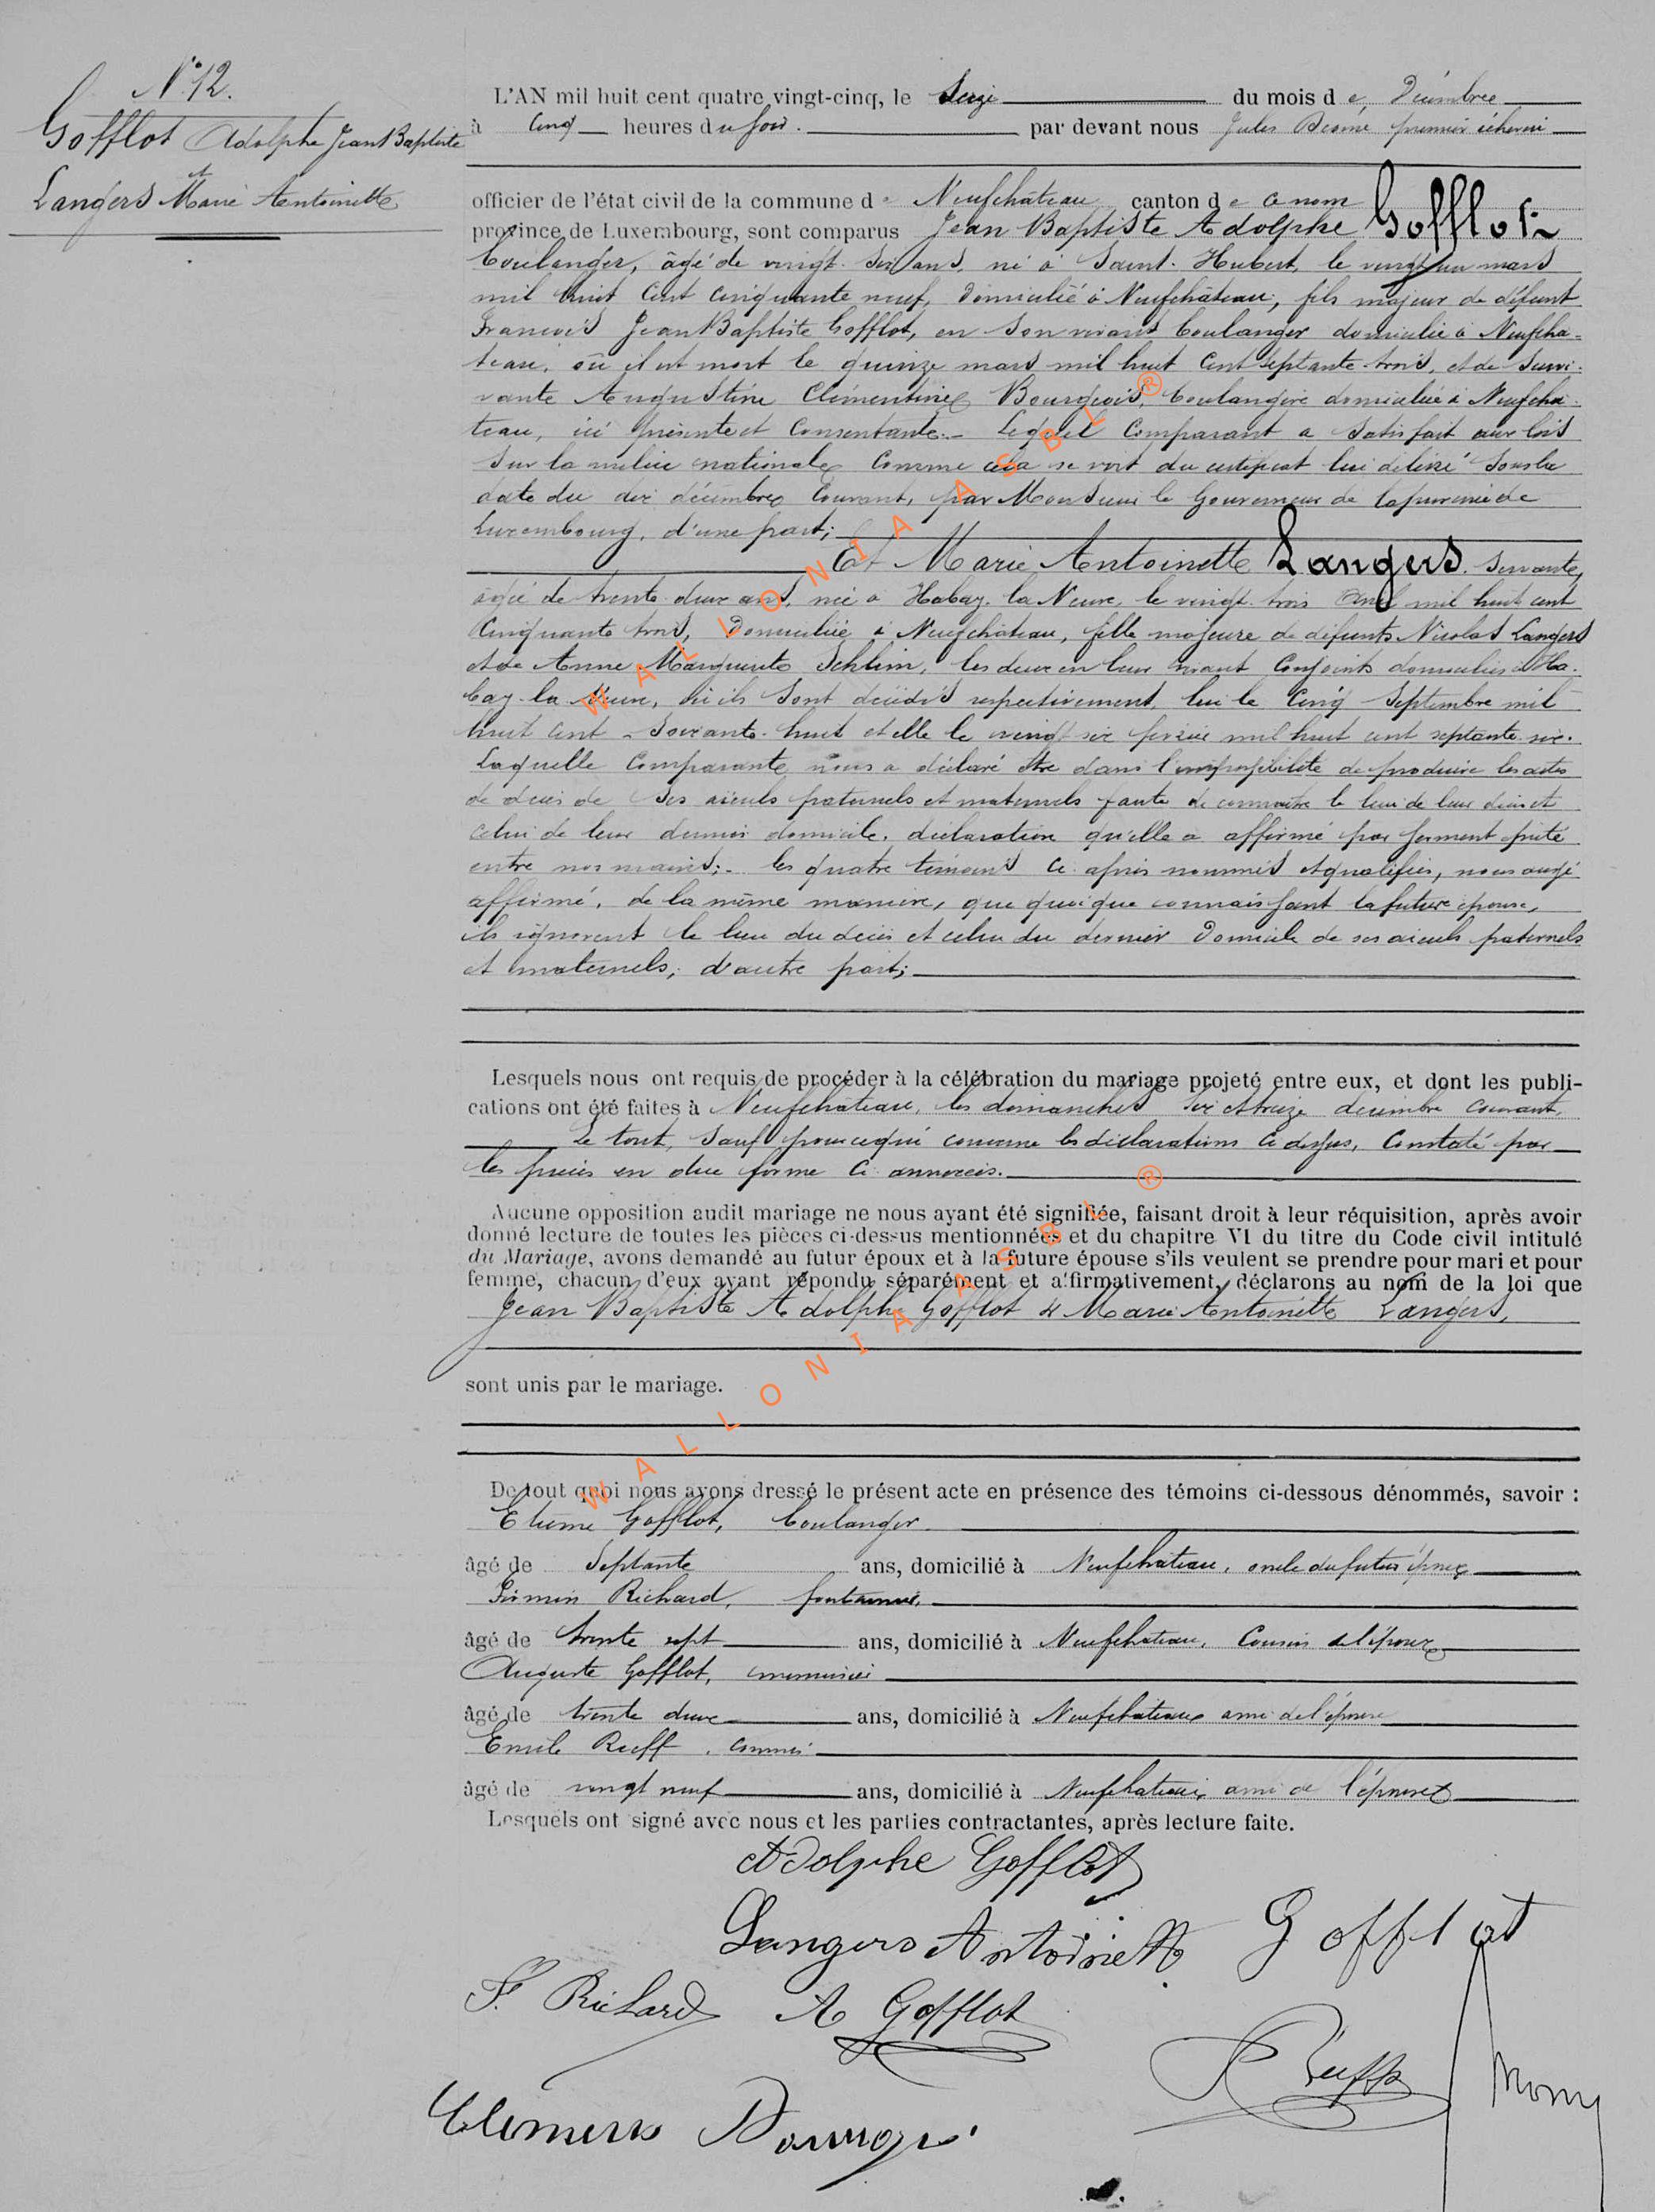 N° 12.
Gofflot Adolphe Jean Baptiste
et
Langers Marie Antoinette
L'AN mil huit cent quatre vingt-cinq, le Seize du mois de Décembre
à Cinq heures du soir. par devant nous Jules premier échevin
officier de l'état civil de la commune de Neufchâteau canton de ce nom
province de Luxembourg, sont comparus Jean Baptiste Adolphe Gofflot
boulanger, âgé de vingt-six ans, né à Saint-Hubert, le vingt un mars
mil huit cent cinquante neuf, domicilié à Neufchâteau, fils majeur de défunt
François Jean Baptiste Gofflot, en son vivant boulanger domicilié à Neufchâ-
teau, où il est mort le quinze mars mil huit cent septante-trois, et de survi-
vante Augustine Clémentine Bourgeois, boulangère domiciliée à Neufchâ-
teau, ici présente et consentante.- Lequel Comparant a satisfait aux lois
sur la milice nationale comme cela se voit du certificat lui délivré sous la
date du dix décembre courant, par Monsieur le Gouverneur de la province de
Luxembourg, d'une part;
Et Marie Antoinette Langers servante,
âgée de trente-deux ans, née à Habay-la-Neuve, le vingt-trois avril mil huit cent
cinquante trois, domiciliée à Neufchâteau, fille majeure de défunts Nicolas Langers
et de Anne Marguerite Schlim, les deux en leur vivant conjoints domiciliés à Ha-
bay-la-Neuve, où ils sont décédés respectivement, lui le cinq septembre mil
huit cent soixante-huit et elle le vingt six février mil huit cent septante-six.
Laquelle Comparante nous a déclaré être dans l'impossibilité de produire les actes
de décès de ses aïeuls paternels et maternels faute de connaître le lieu de leur décès et
celui de leur dernier domicile, déclaration qu'elle a affirmé par serment prêté
entre nos mains;- les quatre témoins ci-après nommés et qualifiés, nous aussi
affirmé, de la même manière, que quoique connaissant la future épouse,
ils ignorent le lieu du décès et celui du dernier domicile de ses aïeuls paternels
et maternels, d'autre part;
Lesquels nous ont requis de procéder à la célébration du mariage projeté entre eux, et dont les publi-
cations ont été faites à Neufchâteau, les dimanches six et treize décembre courant,
Le tout, sauf pour ce qui concerne les déclarations ci-dessus, constaté par
les pièces en due forme ci-annexées.
Aucune opposition audit mariage ne nous ayant été signifiée, faisant droit à leur réquisition, après avoir
donné lecture de toutes les pièces ci-dessus mentionnées et du chapitre VI du titre du Code civil intitulé
du Mariage, avons demandé au futur époux et à la future épouse s'ils veulent se prendre pour mari et pour
femme, chacun d'eux ayant répondu séparément et affirmativement, déclarons au nom de la loi que
Jean Baptiste Adolphe Gofflot & Marie Antoinette Langers,
sont unis par le mariage.
De tout quoi nous avons dressé le présent acte en présence des témoins ci-dessous dénommés, savoir :
Etienne Gofflot, boulanger
âgé de Septante ans, domicilié à Neufchâteau, oncle du futur époux
Firmin Richard,
âgé de trente sept ans, domicilié à Neufchâteau, Cousin de l'époux
Auguste Gofflot, menuisier
âgé de trente deux ans, domicilié à Neufchâteau ami de l'épouse
Emile Rueff, commis
âgé de vingt neuf ans, domicilié à Neufchâteau ami de l'épouse
Lesquels ont signé avec nous et les parties contractantes, après lecture faite.
Adolphe Gofflot
Langers Antoinette Gofflot
F. Richard A Gofflot
Rueff
WALLONIA ASBL ®
WALLONIA ASBL ®